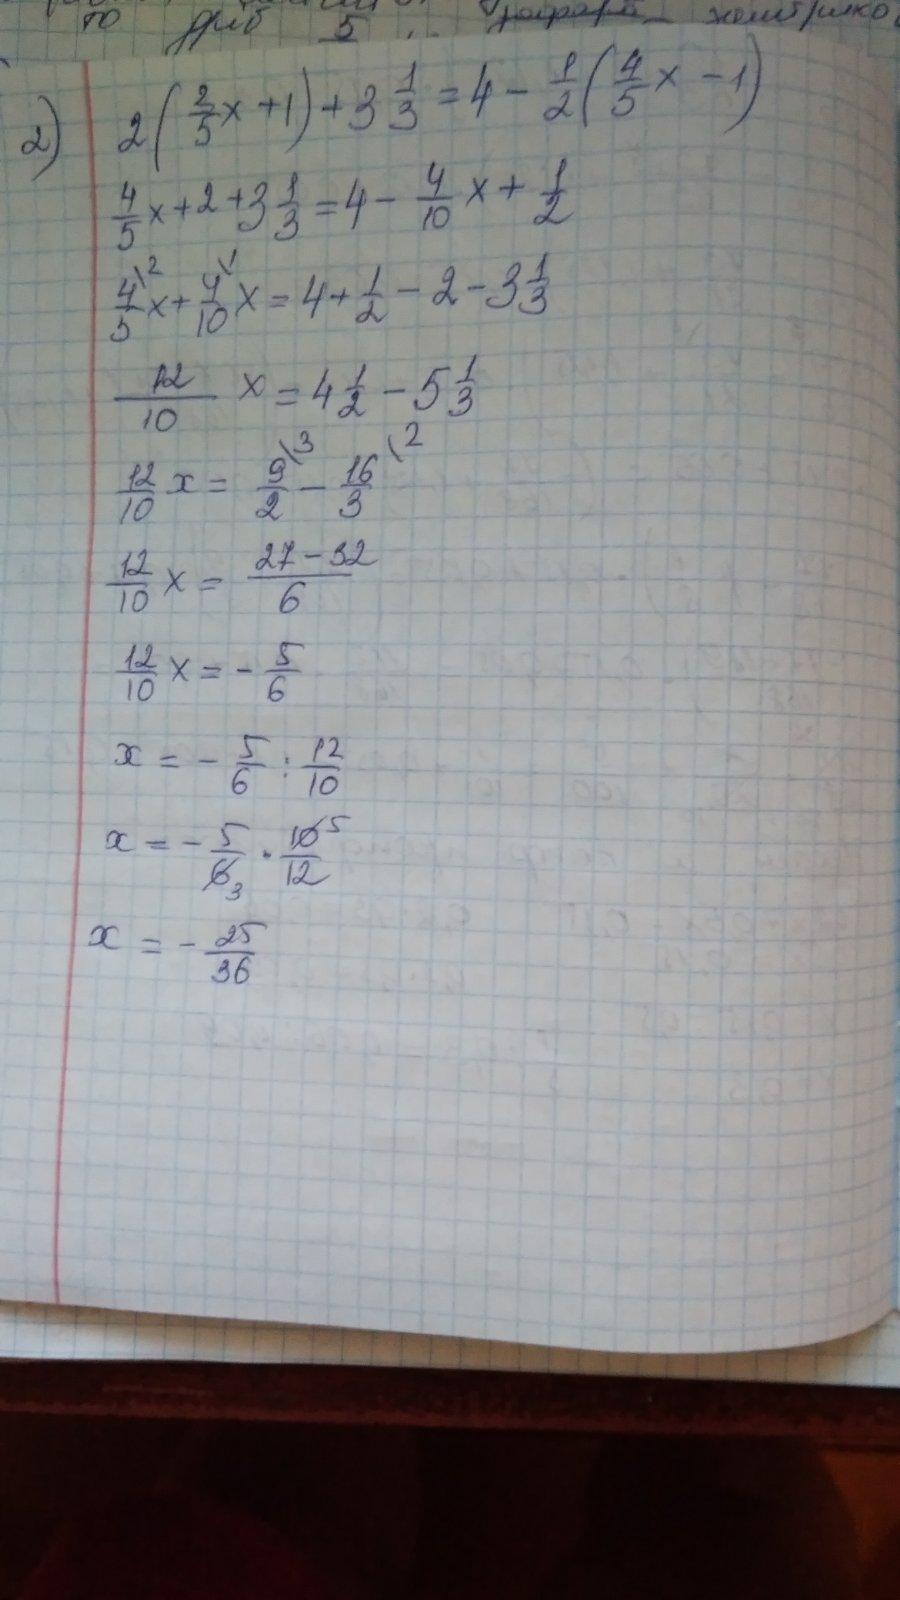 10 дриб 5
2) 2(2/5x+1)+3 1/3=4-1/2(4/5x-1)
4/5x+2+3 1/3=4-4/10x+1/2
4/5\2x+4/10\1x=4+1/2-2-3 1/3
12/10 x=4 1/2-5 1/3
12/10 x=9/2\3-16/3\2
12/10 x=27-32/6
12/10 x=-5/6
x=-5/6:12/10
x=-5/6 3·10 5/12
x=-25/36